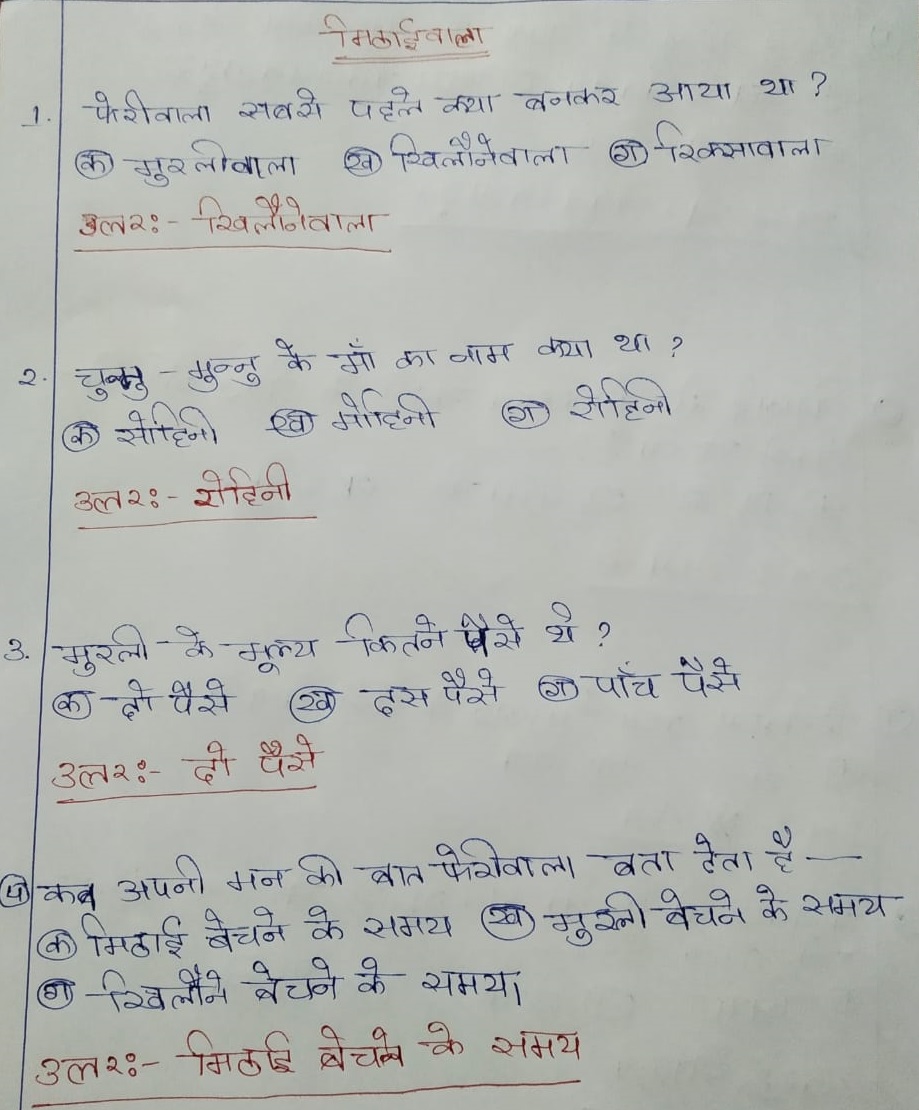 मिठाईवाला
1. फेरीवाला सबसे पहले क्या बनकर आया था ?
क मुरलीवाला ख खिलौनेवाला ग रिक्सावाला
उत्तरः- खिलौनेवाला
2. चुन्नु - मुन्नु के माँ का नाम क्या था ?
क सोहिनी ख मोहिनी ग रोहिनी
उत्तरः- रोहिनी
3. मुरली के मूल्य कितने पैसे थे ?
क दो पैसे ख दस पैसे ग पाँच पैसे
उत्तरः- दो पैसे
4 कब अपनी मन की बात फेरीवाला बता देता है —
क मिठाई बेचने के समय ख मुरली बेचने के समय
ग खिलौने बेचने के समय।
उत्तरः- मिठाई बेचने के समय